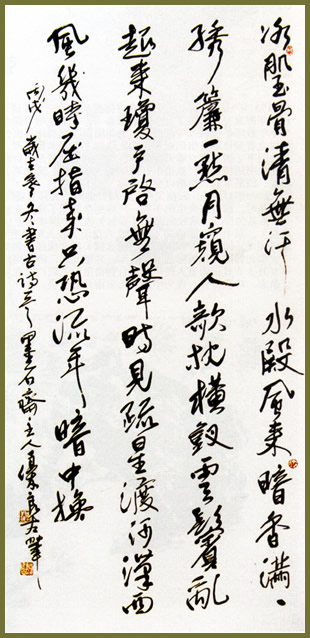 冰肌玉骨清無汗水殿風來暗香滿
綉簾一點月窺人欹枕橫釵雲鬢亂
起來瓊戶啓無聲時見疏星渡河漢西
風幾時屈指來只恐流年暗中換
丙戌歲冬書古诗墨石齋主人